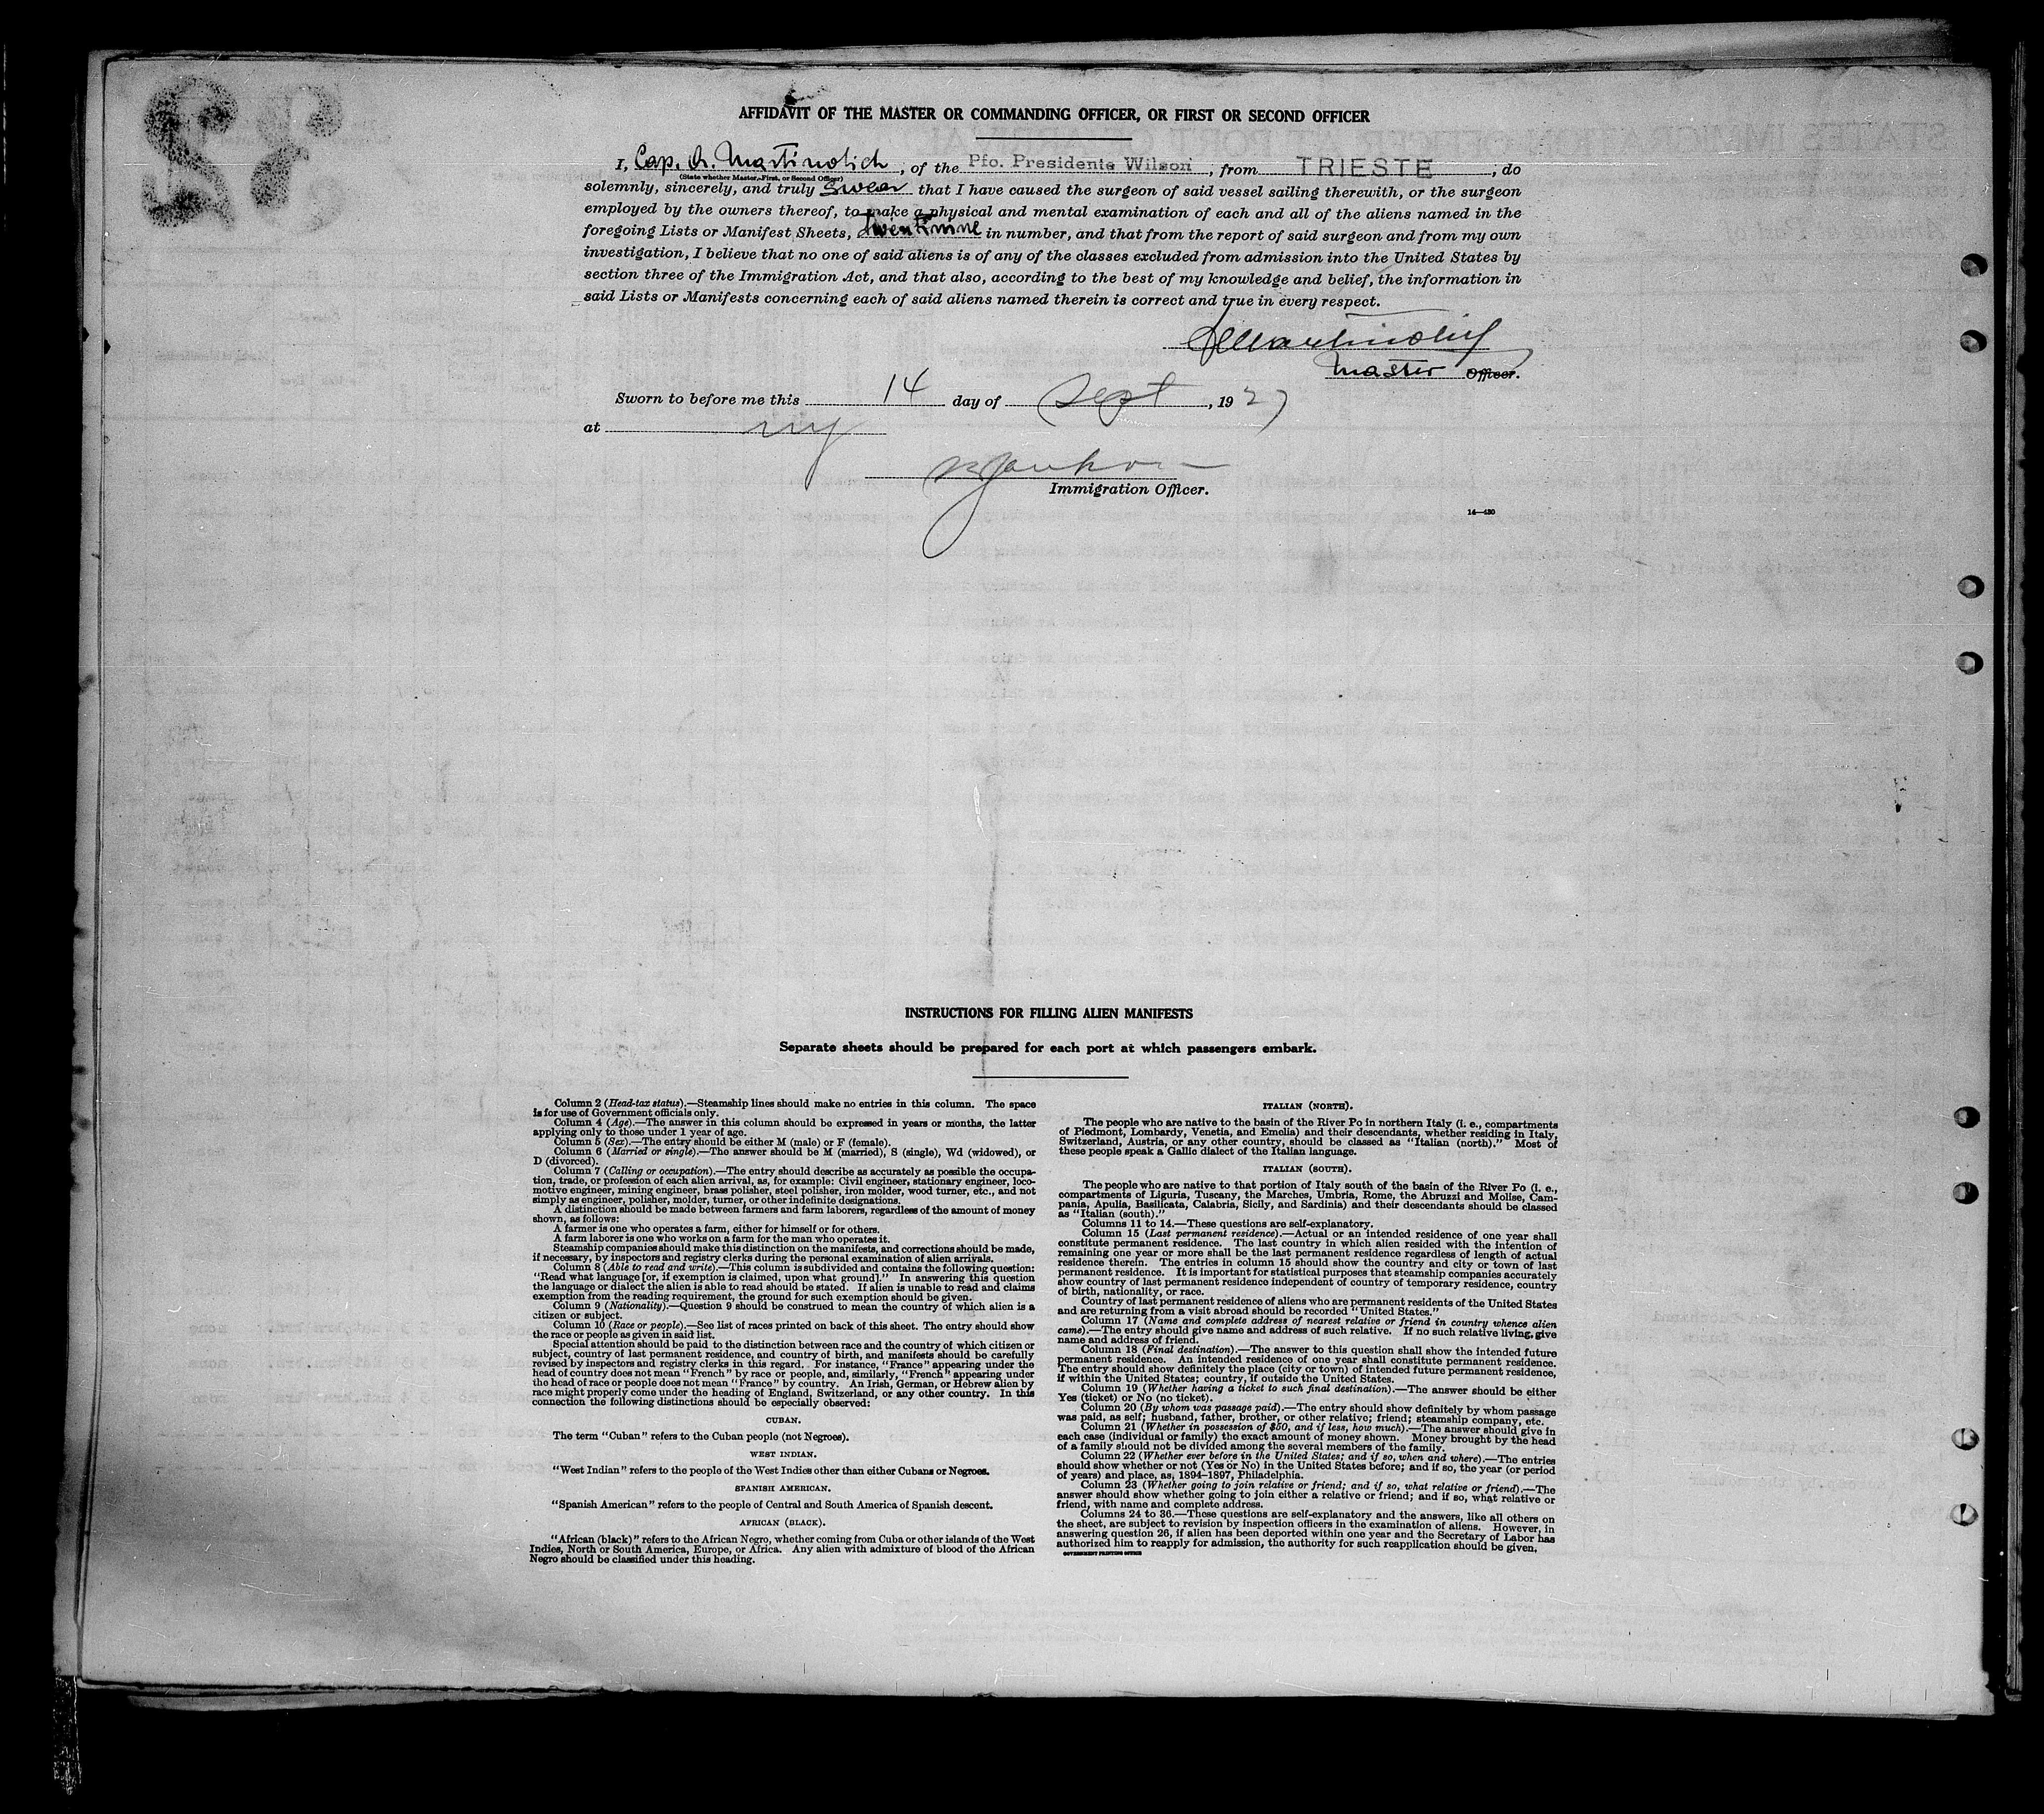 AFFIDAVIT OF THE MASTER OR COMMANDING OFFICER, OR FIRST OR SECOND OFFICER
I, Cap. A. Martinolich, of the Pfo. Presidente Wilson, from TRIESTE, do
(State whether Master, First, or Second Officer)
solemnly, sincerely, and truly swear that I have caused the surgeon of said vessel sailing therewith, or the surgeon
employed by the owners thereof, to make a physical and mental examination of each and all of the aliens named in the
foregoing Lists or Manifest Sheets, in number, and that from the report of said surgeon and from my own
investigation, I believe that no one of said aliens is of any of the classes excluded from admission into the United States by
section three of the Immigration Act, and that also, according to the best of my knowledge and belief, the information in
said Lists or Manifests concerning each of said aliens named therein is correct and true in every respect.
Martinolich
Master Officer.
Sworn to before me this 14 day of Sept, 1927
at ny
Immigration Officer.
14—430
INSTRUCTIONS FOR FILLING ALIEN MANIFESTS
Separate sheets should be prepared for each port at which passengers embark.
Column 2 (Head-tax status).—Steamship lines should make no entries in this column. The space
is for use of Government officials only.
Column 4 (Age).—The answer in this column should be expressed in years or months, the latter
applying only to those under 1 year of age.
Column 5 (Sex).—The entry should be either M (male) or F (female).
Column 6 (Married or single).—The answer should be M (married), S (single), Wd (widowed), or
D (divorced).
Column 7 (Calling or occupation).—The entry should describe as accurately as possible the occupa-
tion, trade, or profession of each alien arrival, as, for example: Civil engineer, stationary engineer, loco-
motive engineer, mining engineer, brass polisher, steel polisher, iron molder, wood turner, etc., and not
simply as engineer, polisher, molder, turner, or other indefinite designations.
A distinction should be made between farmers and farm laborers, regardless of the amount of money
shown, as follows:
A farmer is one who operates a farm, either for himself or for others.
A farm laborer is one who works on a farm for the man who operates it.
Steamship companies should make this distinction on the manifests, and corrections should be made,
if necessary, by inspectors and registry clerks during the personal examination of alien arrivals.
Column 8 (Able to read and write).—This column is subdivided and contains the following question:
"Read what language [or, if exemption is claimed, upon what ground]." In answering this question
the language or dialect the alien is able to read should be stated. If alien is unable to read and claims
exemption from the reading requirement, the ground for such exemption should be given.
Column 9 (Nationality).—Question 9 should be construed to mean the country of which alien is a
citizen or subject.
Column 10 (Race or people).—See list of races printed on back of this sheet. The entry should show
the race or people as given in said list.
Special attention should be paid to the distinction between race and the country of which citizen or
subject, country of last permanent residence, and country of birth, and manifests should be carefully
revised by inspectors and registry clerks in this regard. For instance, "France" appearing under the
head of country does not mean "French" by race or people, and, similarly, "French" appearing under
the head of race or people does not mean "France" by country. An Irish, German, or Hebrew alien by
race might properly come under the heading of England, Switzerland, or any other country. In this
connection the following distinctions should be especially observed:
CUBAN.
The term "Cuban" refers to the Cuban people (not Negroes).
WEST INDIAN.
"West Indian" refers to the people of the West Indies other than either Cubans or Negroes.
SPANISH AMERICAN.
"Spanish American" refers to the people of Central and South America of Spanish descent.
AFRICAN (BLACK).
"African (black)" refers to the African Negro, whether coming from Cuba or other islands of the West
Indies, North or South America, Europe, or Africa. Any alien with admixture of blood of the African
Negro should be classified under this heading.
ITALIAN (NORTH).
The people who are native to the basin of the River Po in northern Italy (i. e., compartments
of Piedmont, Lombardy, Venetia, and Emelia) and their descendants, whether residing in Italy,
Switzerland, Austria, or any other country, should be classed as "Italian (north)." Most of
these people speak a Gallic dialect of the Italian language.
ITALIAN (SOUTH).
The people who are native to that portion of Italy south of the basin of the River Po (i. e.,
compartments of Liguria, Tuscany, the Marches, Umbria, Rome, the Abruzzi and Molise, Cam-
pania, Apulia, Basilicata, Calabria, Sicily, and Sardinia) and their descendants should be classed
as "Italian (south)."
Columns 11 to 14.—These questions are self-explanatory.
Column 15 (Last permanent residence).—Actual or an intended residence of one year shall
constitute permanent residence. The last country in which alien resided with the intention of
remaining one year or more shall be the last permanent residence regardless of length of actual
residence therein. The entries in column 15 should show the country and city or town of last
permanent residence. It is important for statistical purposes that steamship companies accurately
show country of last permanent residence independent of country of temporary residence, country
of birth, nationality, or race.
Country of last permanent residence of aliens who are permanent residents of the United States
and are returning from a visit abroad should be recorded "United States."
Column 17 (Name and complete address of nearest relative or friend in country whence alien
came).—The entry should give name and address of such relative. If no such relative living, give
name and address of friend.
Column 18 (Final destination).—The answer to this question shall show the intended future
permanent residence. An intended residence of one year shall constitute permanent residence.
The entry should show definitely the place (city or town) of intended future permanent residence,
if within the United States; country, if outside the United States.
Column 19 (Whether having a ticket to such final destination).—The answer should be either
Yes (ticket) or No (no ticket).
Column 20 (By whom was passage paid).—The entry should show definitely by whom passage
was paid, as self; husband, father, brother, or other relative; friend; steamship company, etc.
Column 21 (Whether in possession of $50, and if less, how much).—The answer should give in
each case (individual or family) the exact amount of money shown. Money brought by the head
of a family should not be divided among the several members of the family.
Column 22 (Whether ever before in the United States; and if so, when and where).—The entries
should show whether or not (Yes or No) in the United States before; and if so, the year (or period
of years) and place, as, 1894–1897, Philadelphia.
Column 23 (Whether going to join relative or friend; and if so, what relative or friend).—The
answer should show whether going to join either a relative or friend; and if so, what relative or
friend, with name and complete address.
Columns 24 to 36.—These questions are self-explanatory and the answers, like all others on
the sheet, are subject to revision by inspection officers in the examination of aliens. However, in
answering question 26, if alien has been deported within one year and the Secretary of Labor has
authorized him to reapply for admission, the authority for such reapplication should be given.
GOVERNMENT PRINTING OFFICE